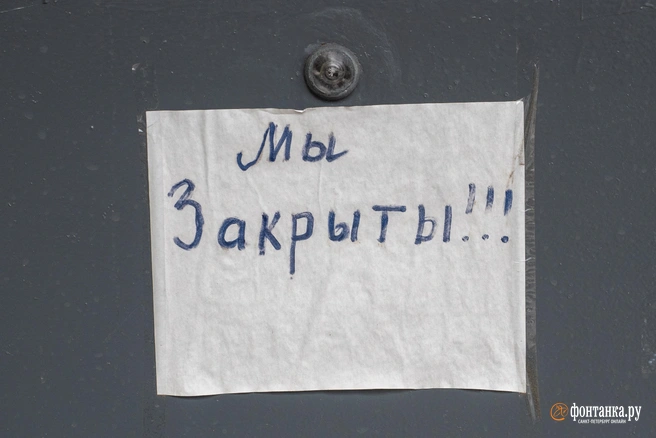 Мы
Закрыты!!!
фонтанка.ру
САНКТ-ПЕТЕРБУРГ ОНЛАЙН